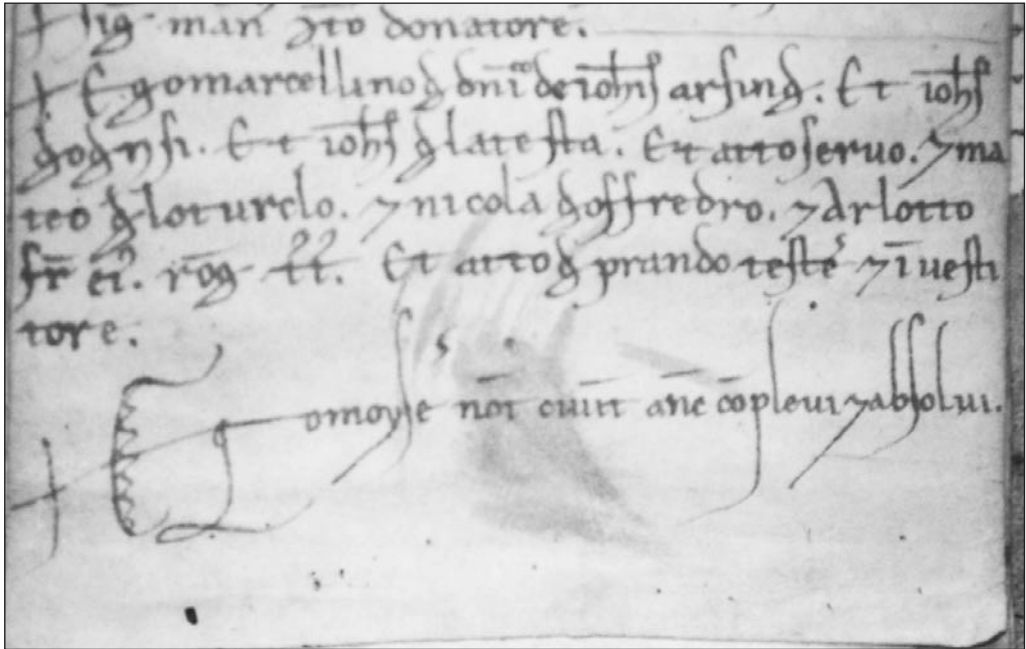 + Sig man Ito donatore.
+ Ego marcellino q̄ dn̄ico de ioh̄s arsing. Et ioh̄s
Et ioh̄s q̄ latesta. Et atto servo. ⁊ ma
teo q̄ loturclo. ⁊ nicola goffredro. ⁊ Arlotto
fr̄ ei. rog̅ t̄t̄. Et atto q̄ prando teste ⁊ īvesti
tore.
+ Ego moyse not̄ civit̄ an̄e cōplevi ⁊ absolvi.